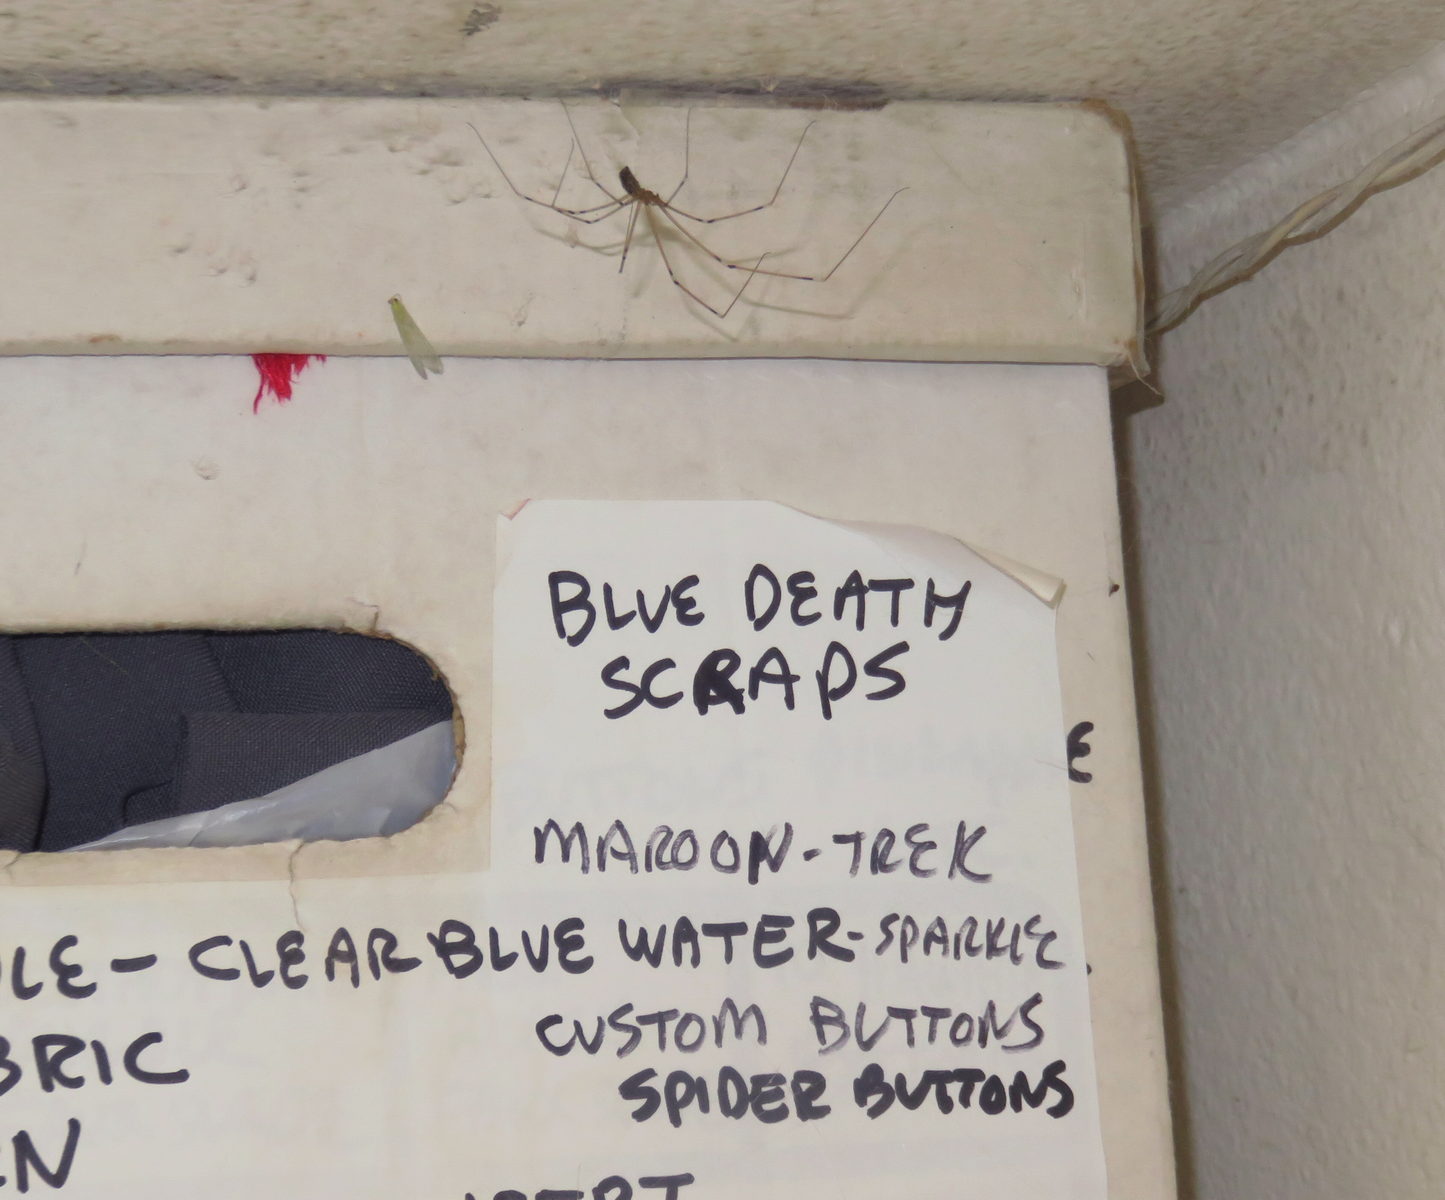 BLUE DEATH
SCRAPS
E
MAROON-TREK
LE - CLEAR BLUE WATER-SPARKLE
BRIC
CUSTOM BUTTONS
SPIDER BUTTONS
N